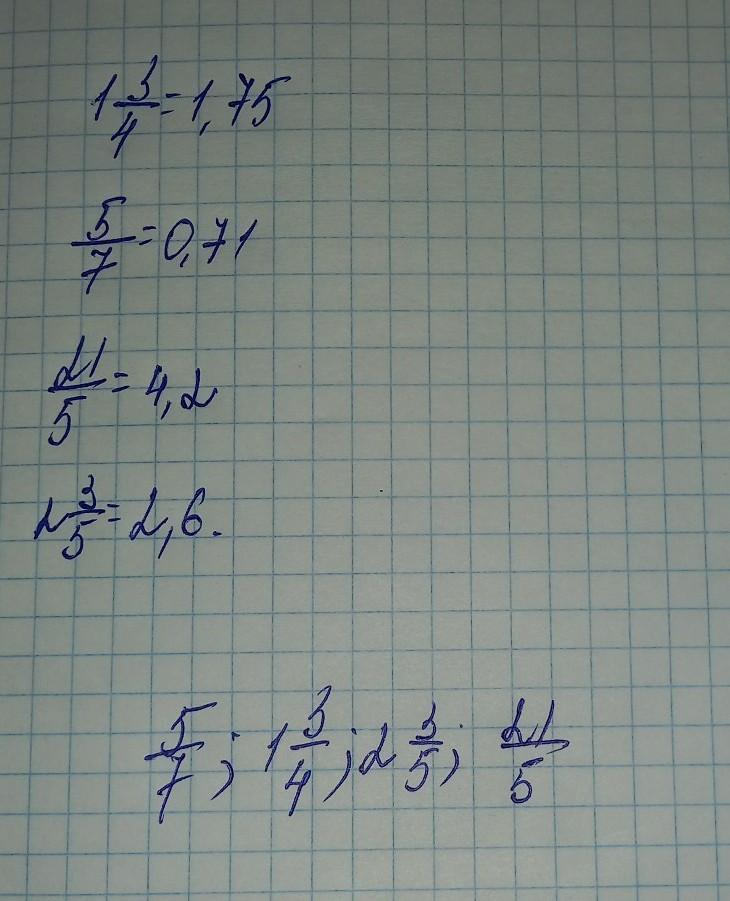 1 3/4 = 1,75
5/7 = 0,71
21/5 = 4,2
2 3/5 = 2,6.
5/7; 1 3/4; 2 3/5; 21/5